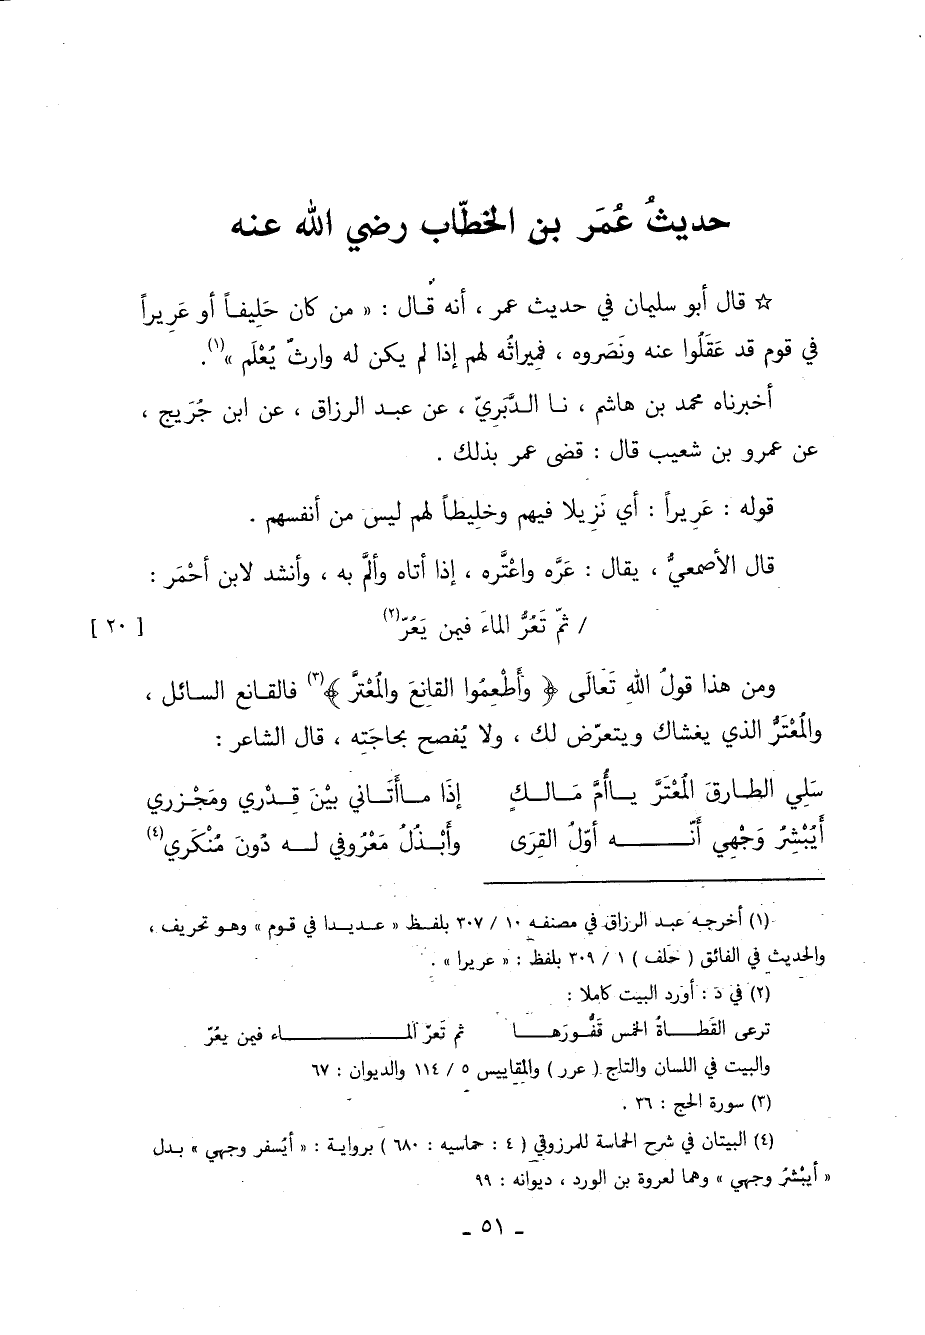 حديثُ عُمَر بن الخطّاب رضي الله عنه
☆ قال أبو سليمان في حديث عمر ، أنه قال : « من كان حَلِيفاً أو عَرِيراً
في قوم قد عَقَلُوا عنه ونَصَروه ، فميراثُه لهم إذا لم يكن له وارثٌ يُعْلَم »(١).
أخبرناه محمد بن هاشم ، نا الدَّبَريّ ، عن عبد الرزاق ، عن ابن جُرَيج ،
عن عمرو بن شعيب قال : قضى عمر بذلك .
قوله : عَرِيراً : أي نَزِيلا فيهم وخلِيطاً لهم ليس من أنفسهم .
قال الأصمعيُّ ، يقال : عَرَّه واعْتَّره ، إذا أتاه وألمَّ به ، وأنشد لابن أحْمَر :
/ ثمّ تَعُرُّ الماءَ فيمن يَعُرّ(٢) [ ٢٠ ]
ومن هذا قولُ اللهِ تَعالَى ﴿ وأَطْعِمُوا القانِعَ والمُعْترَّ ﴾(٣) فالقـانع السـائل ،
والمُعْتَرُّ الذي يغشاك ويتعرّض لك ، ولا يُفصح بحاجتِه ، قال الشاعر :
سَلِي الطـارقَ المُعْتَرَّ يـاأُمَّ مَـالـكٍ إذَا مـاأَتَـاني بيْنَ قِـدْري ومَجْزري
أَيُبْشِرُ وَجْهِي أنَّـــه أوّلُ القِرَى وأبْـذُلُ مَعْرُوفي لـه دُونَ مُنْكَري(٤)
(١) أخرجه عبد الرزاق في مصنفه ١٠ / ٣٠٧ بلفـظ « عـديـدا في قوم » وهو تحريف ،
والحديث في الفائق ( حلف ) ١ / ٣٠٩ بلفظ : « عريرا » .
(٢) في د : أورد البيت كاملا :
ترعى القَطـاةُ الخمس قَفُّورَهـا ثم تَعرّ المـــاء فيمن يعُرّ
والبيت في اللسان والتاج ( عرر ) والمقاييس ٥ / ١١٤ والديوان : ٦٧
(٣) سورة الحج : ٣٦ .
(٤) البيتان في شرح الحماسة للمرزوقي ( ٤ : حماسيه : ٦٨٠ ) برواية : « أيُسفر وجهي » بدل
« أيبْشرُ وجهي » وهما لعروة بن الورد ، ديوانه : ٩٩
ـ ٥١ ـ